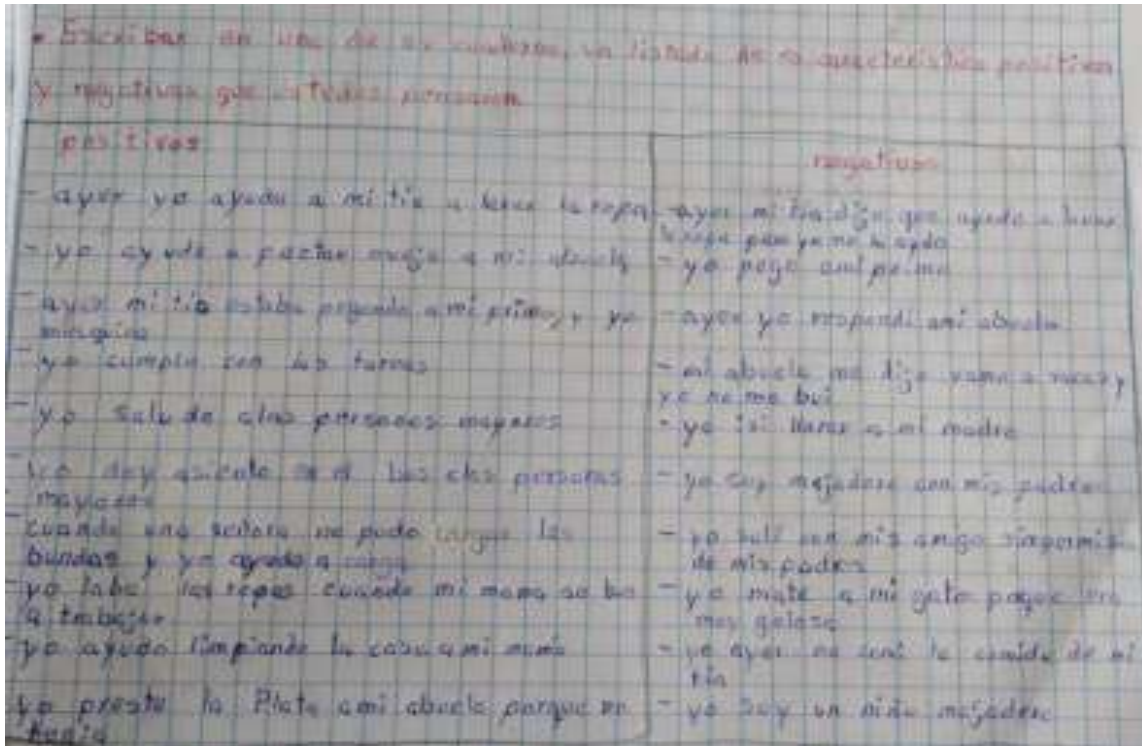 • Escriban en uno de su cuaderno, un listado de 10 característica positivas
y negativas que ustedes
positivos
- ayer yo ayudu a mi tia a labar la ropa
- yo ayude a pastar oveja a mi abuela
- ayer mi tia estaba pegando a mi primo, y yo
- yo cumplo con las tareas
- yo saludo alas personas mayores
- yo doy asiento a las personas
mayores
- cuando una señora no pudo cargar las
bundas y yo ayudo a carga
- yo labo las ropas cuando mi mama se ba
a trabajar
- yo ayudo limpiando la casa a mi mama
yo presto la Plata ami abuela porque no
tenia
negativos
- ayer mi tia dijo que ayude a lavar
la ropa pero yo no le
- yo pego ami primo
- ayer yo respondi ami abuela
- mi abuela me dijo vamo a y
yo no me bui
- yo isi llorar a mi madre
- yo soy majadero con mis padres
- yo sali con mis amigo sinpermiso
de mis padres
- yo mate a mi gato
muy golosa
- yo ayer no comi la comida de mi
tia
- yo soy un niño majadero